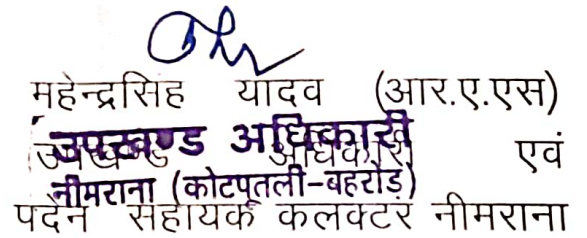 महेन्द्रसिंह यादव (आर.ए.एस)
उपखण्ड अधिकारी एवं
उपखण्ड अधिकारी
नीमराना (कोटपूतली-बहरोड़)
पदेन सहायक कलक्टर नीमराना